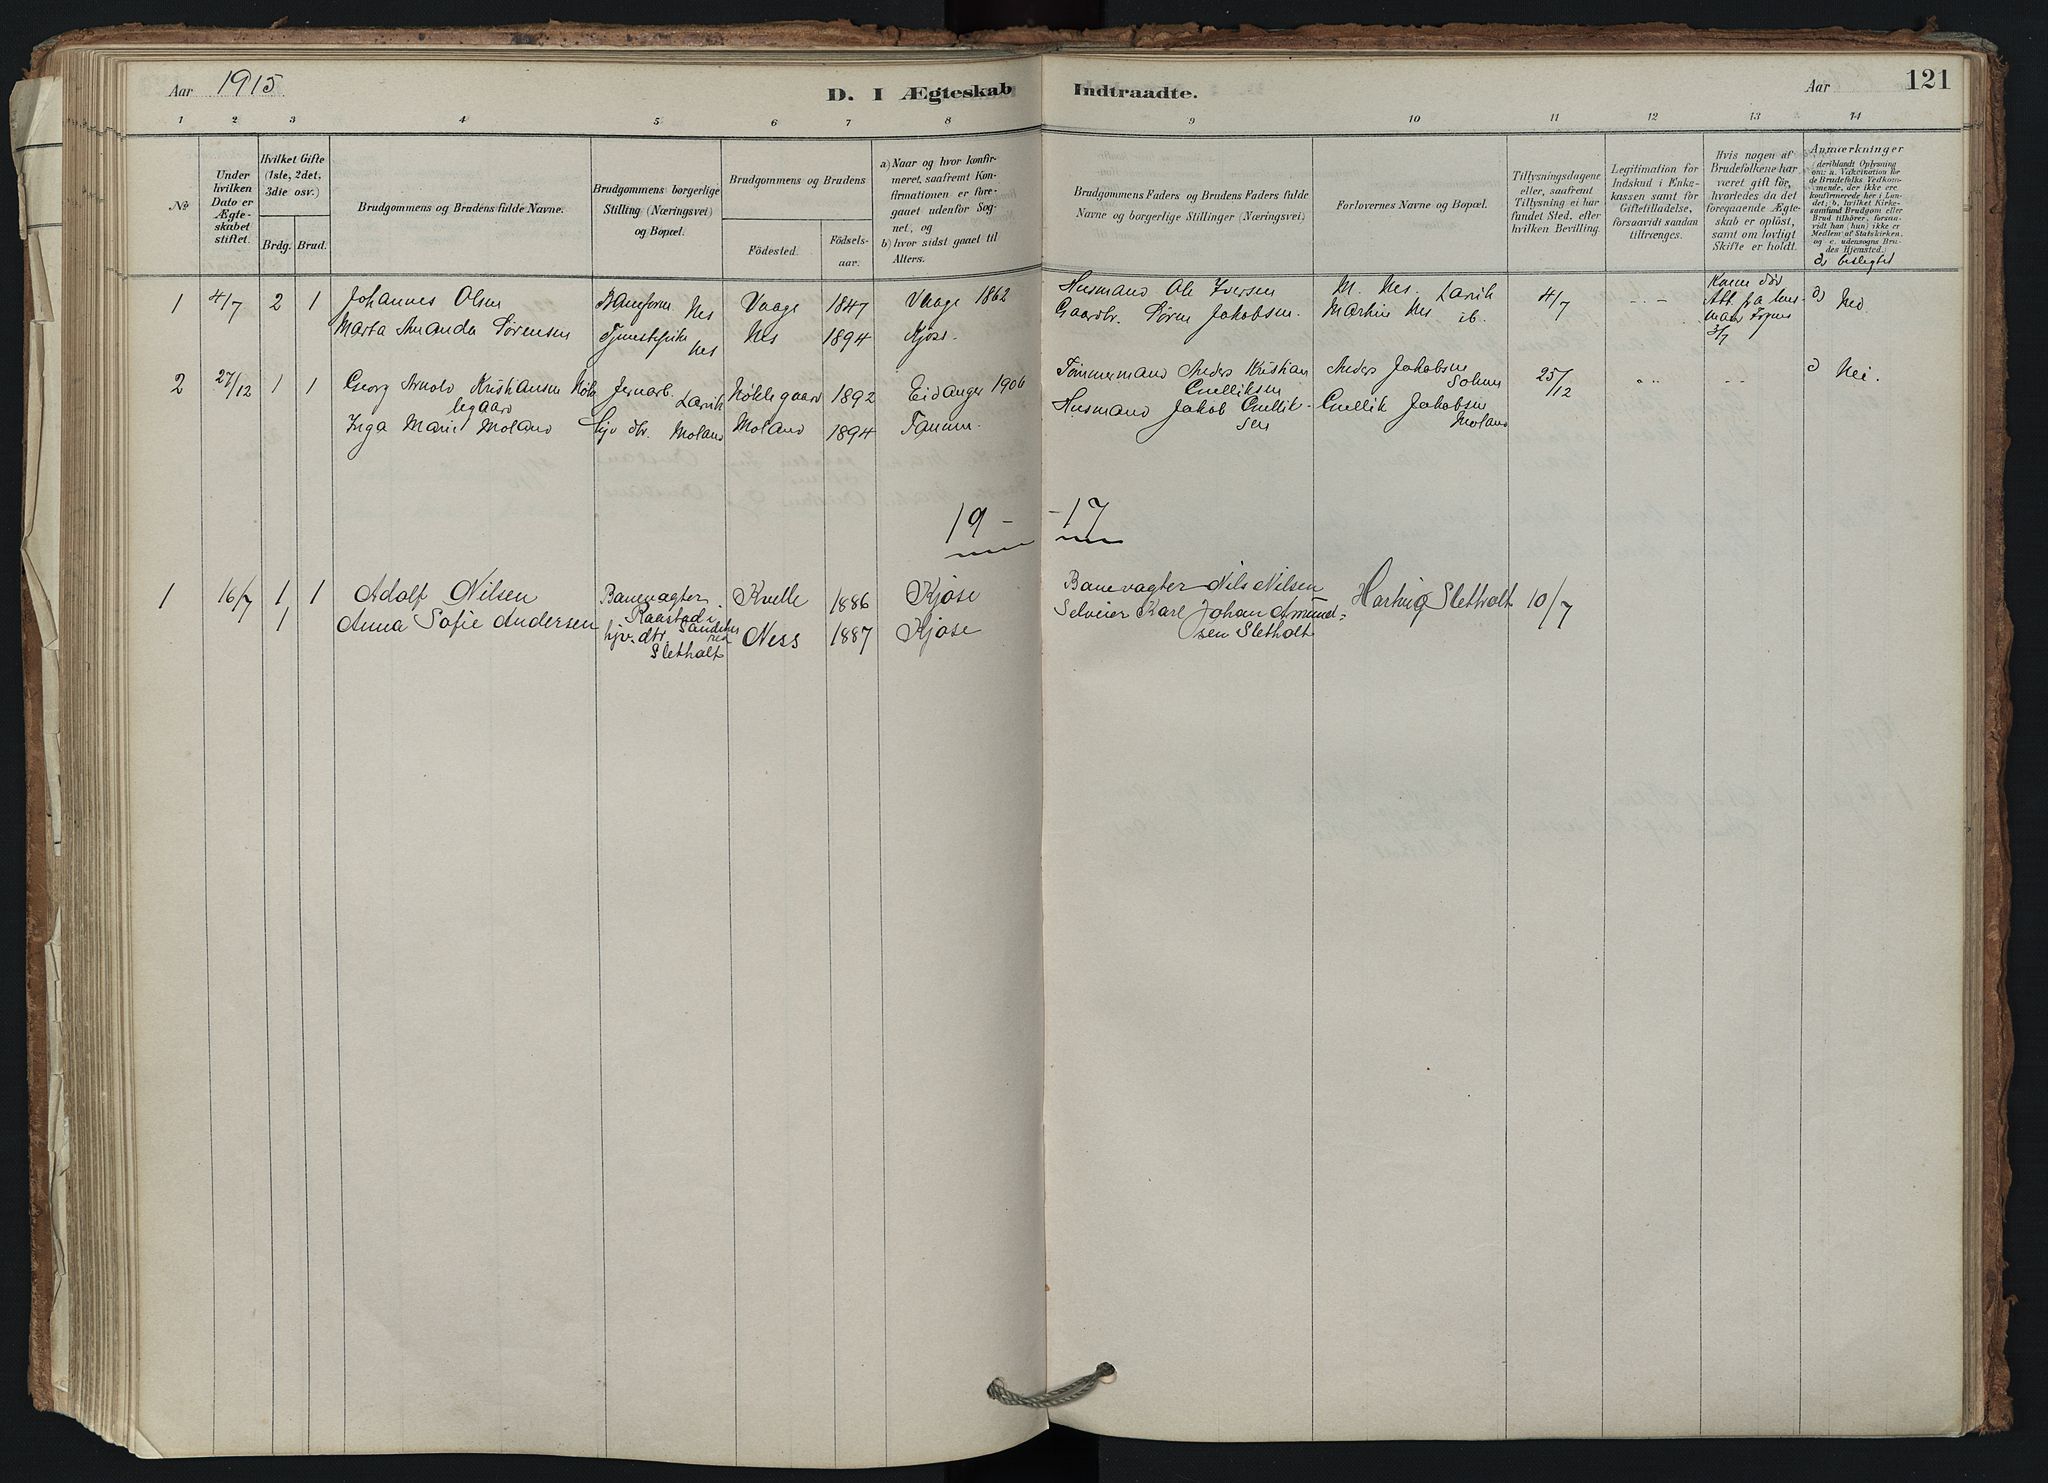 Aar 1915
D. I Ægteskab Indtraadte.
Aar
121
1 2 3 4 5 6 7 8 9 10 11 12 13 14
№
Under hvilken Dato er Ægte-skabet stiftet.
Hvilket Gifte (1ste, 2det, 3die osv.)
Brdg. Brud.
Brudgommens og Brudens fulde Navne.
Brudgommens borgerlige Stilling (Næringsvei) og Bopæl.
Brudgommens og Brudens
Födested.
Födsels-aar.
a) Naar og hvor konfir-meret, saafremt Kon-firmationen er fore-gaaet udenfor Sog-net, og
b) hvor sidst gaaet til Alters.
Brudgommens Faders og Brudens Faders fulde Navne og borgerlige Stillinger (Næringsvei)
Forlovernes Navne og Bopæl.
Tillysningsdagene eller, saafremt Tillysning ei har fundet Sted, efter hvilken Bevilling.
Legitimation for Indskud i Enke-kassen samt for Giftetilladelse, forsaavidt saadan tiltrænges.
Hvis nogen af Brudefolkene har været gift før, hvorledes da det foregaaende Ægte-skab er oplöst, samt om lovligt Skifte er holdt.
Anmærkninger
deriblandt Oplysning om: a. Vakcination for de Brudefolks Vedkom-mende, der ikke ere konfirmerede her i Lan-det; b. hvilket Kirke-samfund Brudgom eller Brud tilhörer, forsaa-vidt han (hun) ikke er Medlem af Statskirken, og c. udensogns Bru-des Hjemsted.
d, beslegtet
1 4/7 2 1 Johannes Olsen Baneform. Nes Vaage 1847 Vaage 1862 Husmand Ole Iversen M. Nes. Larvik 4/7 Konen død
Marta Amanda Sørensen Nes Nes 1894 Kjose. Gaardbr. Søren Jakobsen. Martin Nes ib. Att. fra
3/7
d)
2 27/12 1 1 Georg Arnold Kristiansen Nøk- Jernarb. Larvik Nøklegaard 1892 Eidanger 1906 Tømmermand Anders Kristian Anders Jakobsen 25/12 d) Nei.
legaard Gulliksen
Inga Marie Moland hjv. dtr. Moland Moland 1894 Tanum. Husmand Jakob Gullik- Gullik Jakobsen
sen Moland
19 - - 17
1 16/7 1 1 Adolf Nilsen Banevagter Kvelle 1886 Kjose Banevagter Nils Nilsen Hartvig Sletholt 10/7
1 Anna Sofie Andersen Raastad i Sandehe- Ness 1887 Kjose Selveier Karl Johan Amund-
hjv. dtr. red sen Sletholt
Sletholt